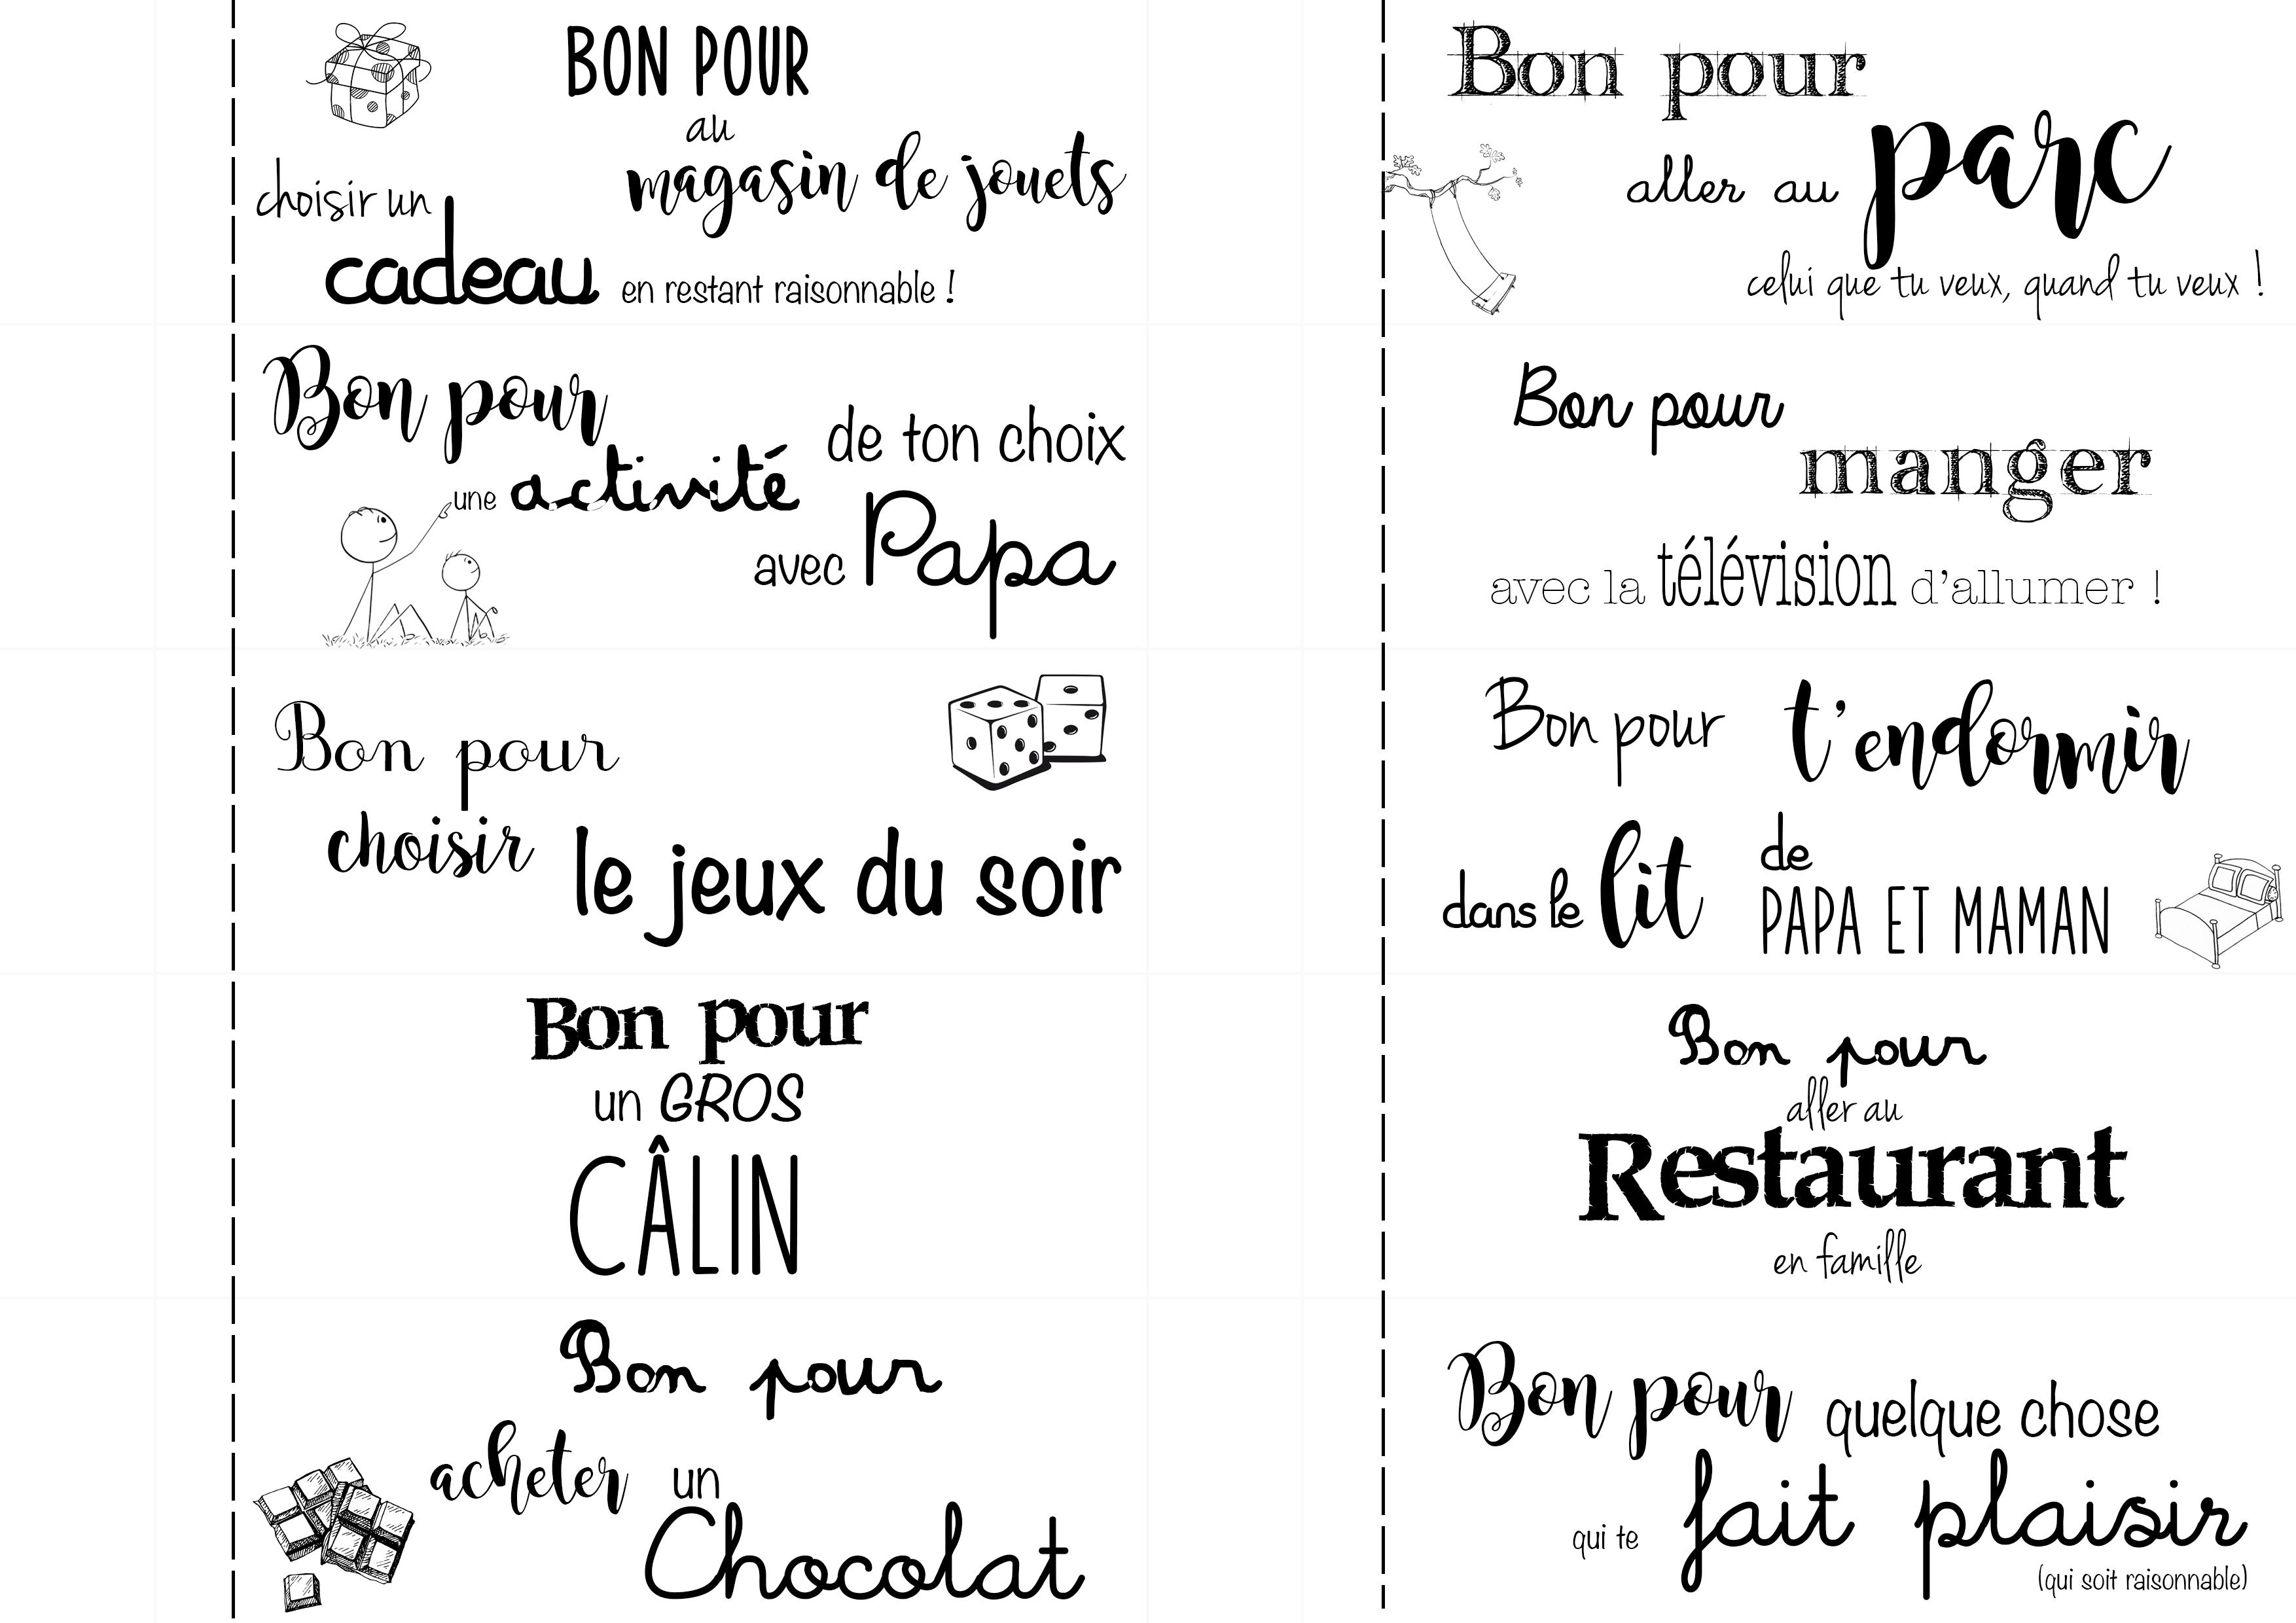 BON POUR
au
magasin de jouets
choisir un
cadeau en restant raisonnable !
Bon pour
une activité de ton choix
avec Papa
Bon pour
choisir le jeux du soir
Bon pour
un GROS
CÂLIN
Bon pour
acheter un
Chocolat
Bon pour
aller au parc
celui que tu veux, quand tu veux !
Bon pour
manger
avec la télévision d'allumer !
Bon pour t'endormir
dans le lit de
PAPA ET MAMAN
Bon pour
aller au
Restaurant
en famille
Bon pour quelque chose
qui te fait plaisir
(qui soit raisonnable)